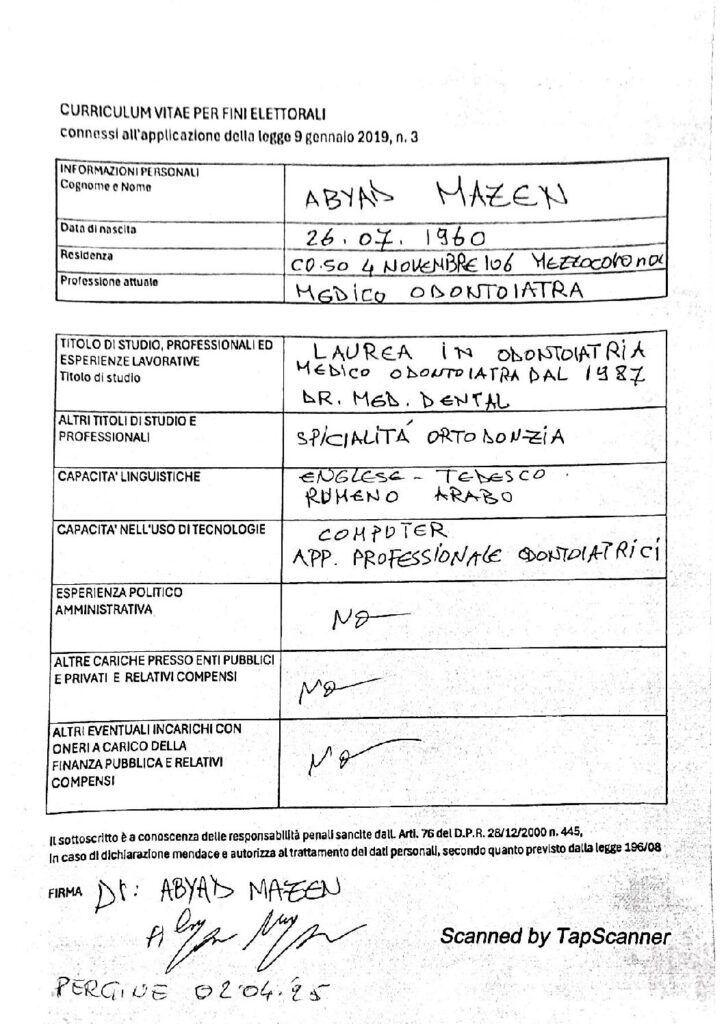 CURRICULUM VITAE PER FINI ELETTORALI
connessi all'applicazione della legge 9 gennaio 2019, n. 3
INFORMAZIONI PERSONALI
Cognome e Nome
ABYAD MAZEN
Data di nascita
26.07.1960
Residenza
CO.SO 4 NOVEMBRE 106
Professione attuale
MEDICO ODONTOIATRA
TITOLO DI STUDIO, PROFESSIONALI ED
ESPERIENZE LAVORATIVE
Titolo di studio
LAUREA IN ODONTOIATRIA
MEDICO ODONTOIATRA DAL 1987
DR. MED. DENTAL
ALTRI TITOLI DI STUDIO E
PROFESSIONALI
SPICIALITÁ ORTODONZIA
CAPACITA' LINGUISTICHE
ENGLESE - TEDESCO
RUMENO ARABO
CAPACITA' NELL'USO DI TECNOLOGIE
COMPUTER
APP. PROFESSIONALE ODONTOIATRICI
ESPERIENZA POLITICO
AMMINISTRATIVA
NO
ALTRE CARICHE PRESSO ENTI PUBBLICI
E PRIVATI E RELATIVI COMPENSI
NO
ALTRI EVENTUALI INCARICHI CON
ONERI A CARICO DELLA
FINANZA PUBBLICA E RELATIVI
COMPENSI
NO
Il sottoscritto è a conoscenza delle responsabilità penali sancite dall. Arti. 76 del D.P.R. 28/12/2000 n. 445,
In caso di dichiarazione mendace e autorizza al trattamento dei dati personali, secondo quanto previsto dalla legge 196/08
FIRMA Dr: ABYAD MAZEN
Scanned by TapScanner
PERGINE 02.04.25